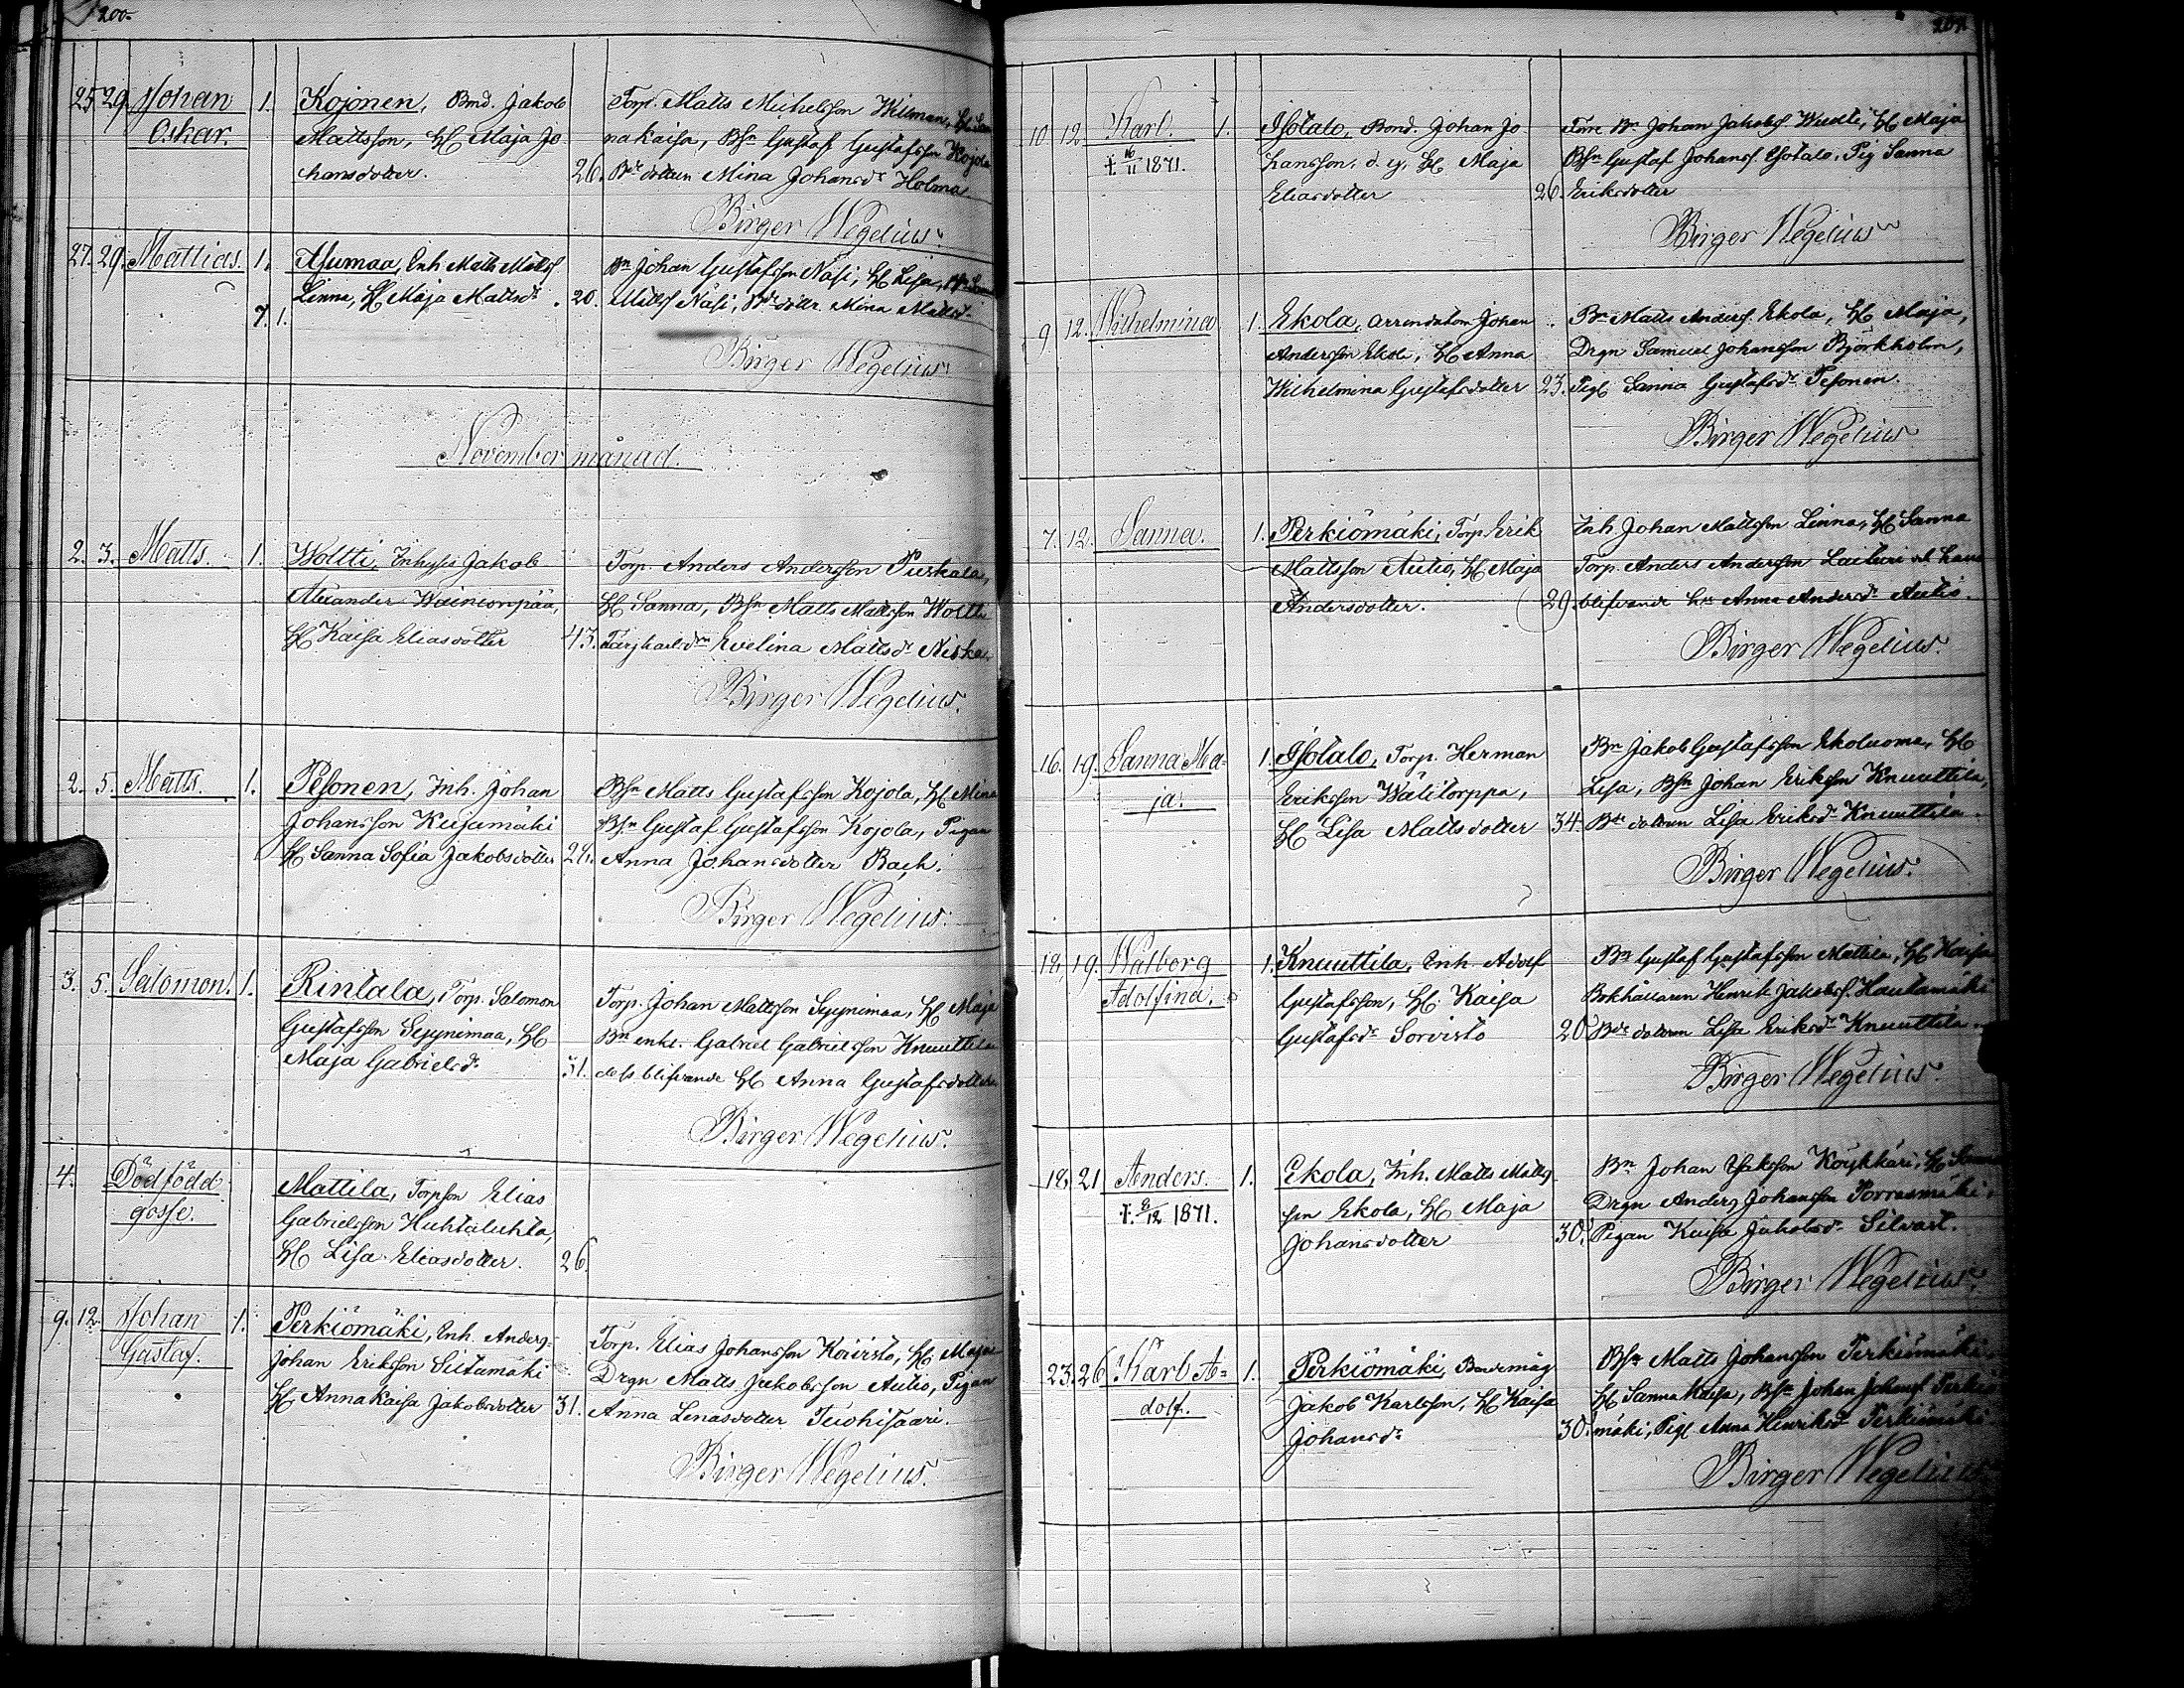 200.
25. 29. Johan 1. Kojonen, Bond. Jakob Torp. Matts Michelsson Willman, H
Oskar. Mattsson, H Maja Jo na Kaisa, Bsn Gustaf Gustafsson Kojola
hansdotter. 26. Bde dottern Mina Johansdr Holma
Birger Wegelius.
27. 29. Mattias. 1. Asumaa, Inh Matts Mattss Bn Johan Gustafsson Näsi, H Lisa,
Linna, H Maja Mattsdr 20. Mattss Näsi, Bde dottr Mina Mattsdr
7. 1.
Birger Wegelius.
November månad.
2. 3. Matts. 1. Woltti, Inhyses Jakob Torp. Anders Andersson Purkala,
Alexander Wainionpää, H Sanna, Bsn Matts Mattsson Woltti
H Kaisa Eliasdotter 43. Evelina Mattsdr Niska
Birger Wegelius.
2. 5. Matts. 1. Pesonen, Inh. Johan Bsn Matts Gustafsson Kojola, H Mina
Johansson Kujamäki Bsn Gustaf Gustafsson Kojola, Pigan
H Sanna Sofia Jakobsdotter Anna Johansdotter Rach.
Birger Wegelius.
3. 5. Salomon. 1. Rintala, Torp. Salomon Torp. Johan Mattsson Sepynimaa, H Maja
Gustafsson Sepynimaa, H Bn enkl. Gabriel Gabrielsson Knuuttila
Maja Gabrielsdr 31. dess blifvande H Anna Gustafsdotter
Birger Wegelius.
4. Dödfödd Mattila, Torpson Elias
gosse. Gabrielsson Huhtaluhta,
H Lisa Eliasdotter. 26.
9. 12. Johan 1. Perkiömäki, Inh. Anders Torp. Elias Johansson Koivisto, H Maja
Gustaf. Johan Eriksson Siltamäki Drgn Matts Jakobsson Autio, Pigan
H Anna Kaisa Jakobsdotter 31. Anna Lenasdotter Teuhisaari.
Birger Wegelius.
201.
10 12 Karl. 1. Isotalo, Bond. Johan Jo Johan Jakobss. H Maja
†. 16/11 1871. hansson. d. y, H Maja Bsn Gustaf Johanss. Isotalo, Pig Sanna
Eliasdotter 26. Eriksdotter
Birger Wegelius
9 12. Wilhelmina 1. Ekola, arrendatorn Johan Bn Matts Anderss. Ekola, H Maja,
Andersson Ekola, H Anna Drgn Samuel Johansson Björkholm,
Wilhelmina Gustafsdotter 23. Pig Sanna Gustafsdr Pesonen.
Birger Wegelius
7. 12. Sanna. 1. Perkiömäki, Torp. Erik Inh Johan Mattsson Linna, H Sanna
Mattsson Autio, H Maja Torp. Anders Andersson och hans
Andersdotter. 29. blifvande H Anna Andersdr Autio.
Birger Wegelius.
16. 19. Sanna Ma- 1. Isotalo, Torp. Herman Bn Jakob Gustafsson Ekoluoma, H
ja. Eriksson Wälitorppa, Lisa, Bsn Johan Eriksson Knuuttila,
H Lisa Mattsdotter 34. Bde dottern Lisa Eriksdr Knuuttila.
Birger Wegelius.
18. 19. Walborg 1. Knuuttila, Inh. Adolf Bn Gustaf Gustafsson Mattila, H Kaisa
Adolfina. Gustafsson, H. Kaisa Bokhållaren Henrik Jakobss. Hautamäki
Gustafsdr Sorvisto 20 Bde dottern Lisa Eriksdr Knuuttila.
Birger Wegelius.
18. 21 Anders. 1. Ekola, Inh. Matts Matts Bn Johan Isaksson Köykkäri, H
†. 8/12 1871. son Ekola, H Maja Drgn Anders Johansson Porrasmäki,
Johansdotter 30. Pigan Kaisa Jakobsdr Silvast.
Birger Wegelius.
23. 26. Karl A- 1. Perkiömäki, Bondemåg Bsn Matts Johansson Perkiömäki,
dolf. Jakob Karlsson, H Kaisa H Sanna Kaisa, Bsn Johan Johanss Perkiö
Johansdr 30. mäki, Pig Anna Henriksdr Perkiömäki
Birger Wegelius.